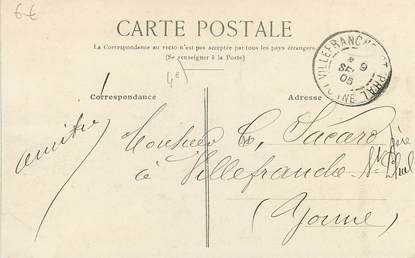 6 €
CARTE POSTALE
La Correspondance au recto n'est pas acceptée par tous les pays étrangers
(Se renseigner à la Poste)
4€
VILLEFRANCHE-ST-PHAL
9
SE
05
YONNE
Correspondance
Adresse
amitié
Monsieur
à Villefranche-St Phal
(Yonne)